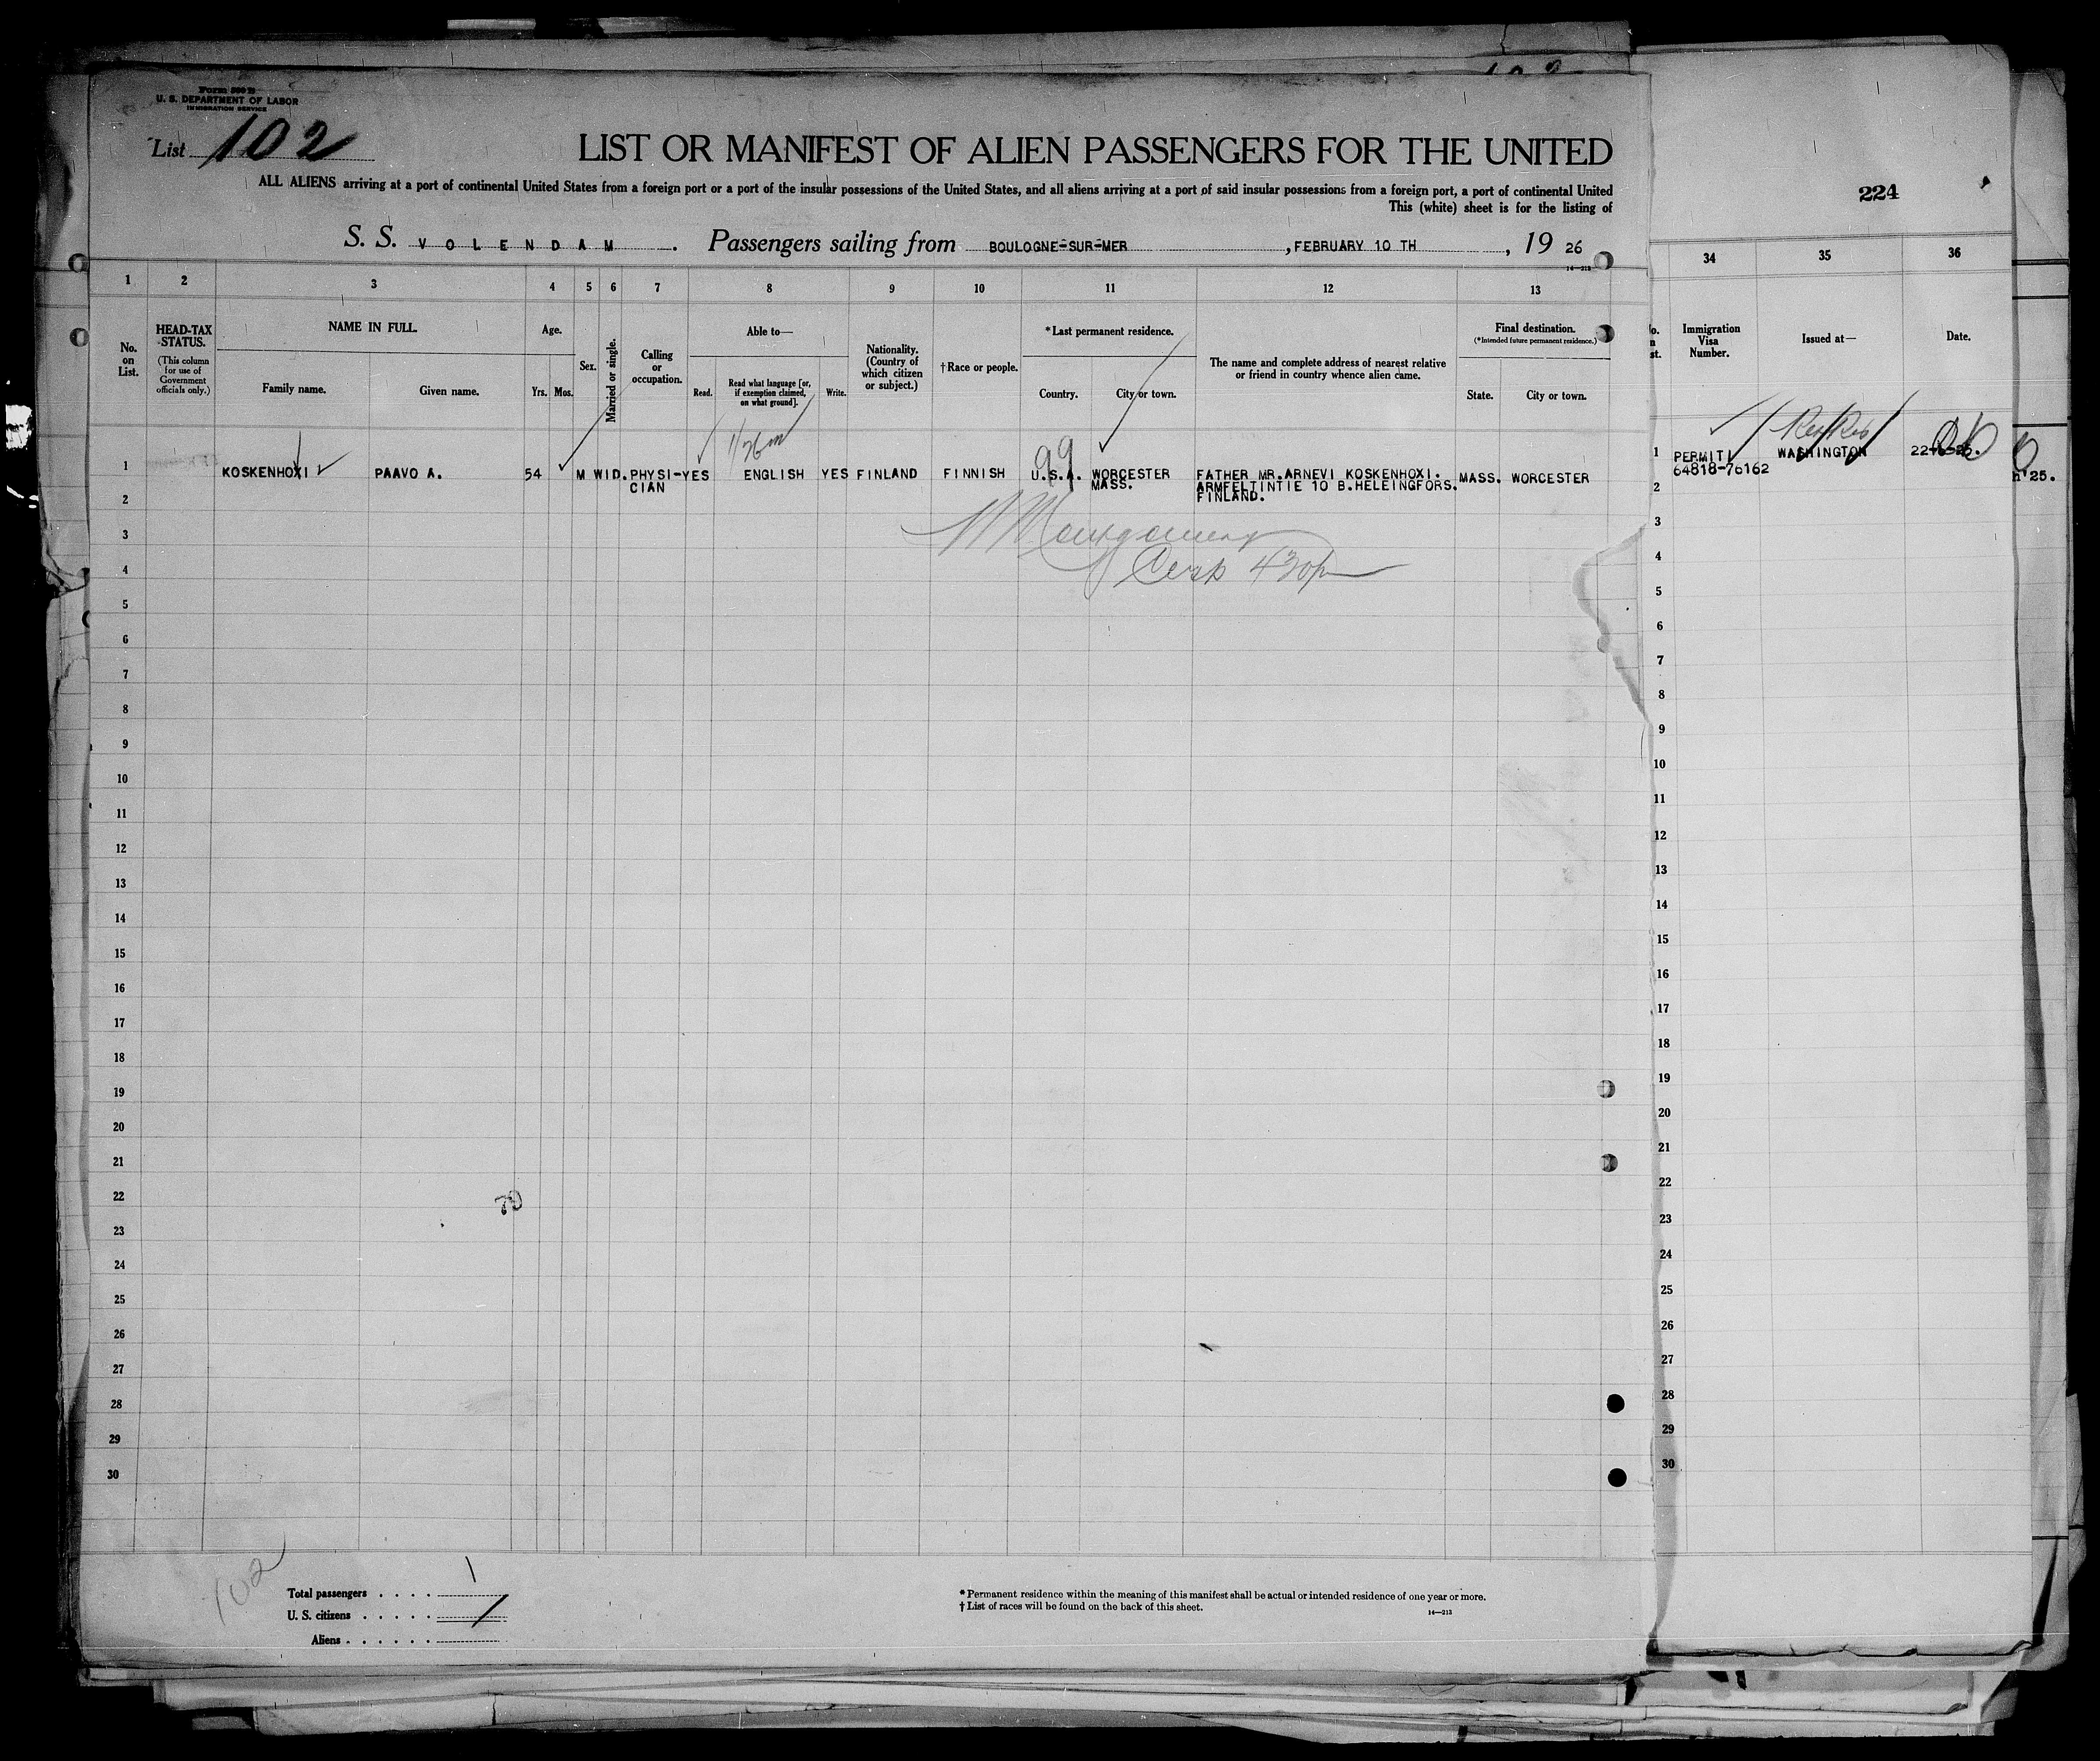 Form 500 B
U. S. DEPARTMENT OF LABOR
IMMIGRATION SERVICE
List 102
LIST OR MANIFEST OF ALIEN PASSENGERS FOR THE UNITED
ALL ALIENS arriving at a port of continental United States from a foreign port or a port of the insular possessions of the United States, and all aliens arriving at a port of said insular possessions from a foreign port, a port of continental United
This (white) sheet is for the listing of
224
S. S. VOLENDAM. Passengers sailing from BOULOGNE-SUR-MER, FEBRUARY 10 TH, 19 26
14—213
1 2 3 4 5 6 7 8 9 10 11 12 13 34 35 36
No. on List.
HEAD-TAX STATUS.
(This column for use of Government officials only.)
NAME IN FULL.
Family name. Given name.
Age.
Yrs. Mos.
Sex.
Married or single.
Calling or occupation.
Able to—
Read. Read what language [or, if exemption claimed, on what ground]. Write.
Nationality. (Country of which citizen or subject.)
†Race or people.
*Last permanent residence.
Country. City or town.
The name and complete address of nearest relative or friend in country whence alien came.
Final destination.
(*Intended future permanent residence.)
State. City or town.
Immigration Visa Number.
Issued at—
Date.
99
1 KOSKENHOXI PAAVO A. 54 M WID. PHYSI- YES ENGLISH YES FINLAND FINNISH U.S.A. WORCESTER FATHER MR.ARNEVI KOSKENHOXI. MASS. WORCESTER 1 PERMIT WASHINGTON
CIAN MASS. ARMFELTINTIE 10 B.HELEINGFORS. 64818-76162
FINLAND.
25.
Montgomery
430p
2 2
3 3
4 4
5 5
6 6
7 7
8 8
9 9
10 10
11 11
12 12
13 13
14 14
15 15
16 16
17 17
18 18
19 19
20 20
21 21
22 22
23 23
24 24
25 25
26 26
27 27
28 28
29 29
30 30
102
Total passengers . . . . 1
U. S. citizens . . . . .
Aliens . . . . . .
* Permanent residence within the meaning of this manifest shall be actual or intended residence of one year or more.
† List of races will be found on the back of this sheet.
14—213